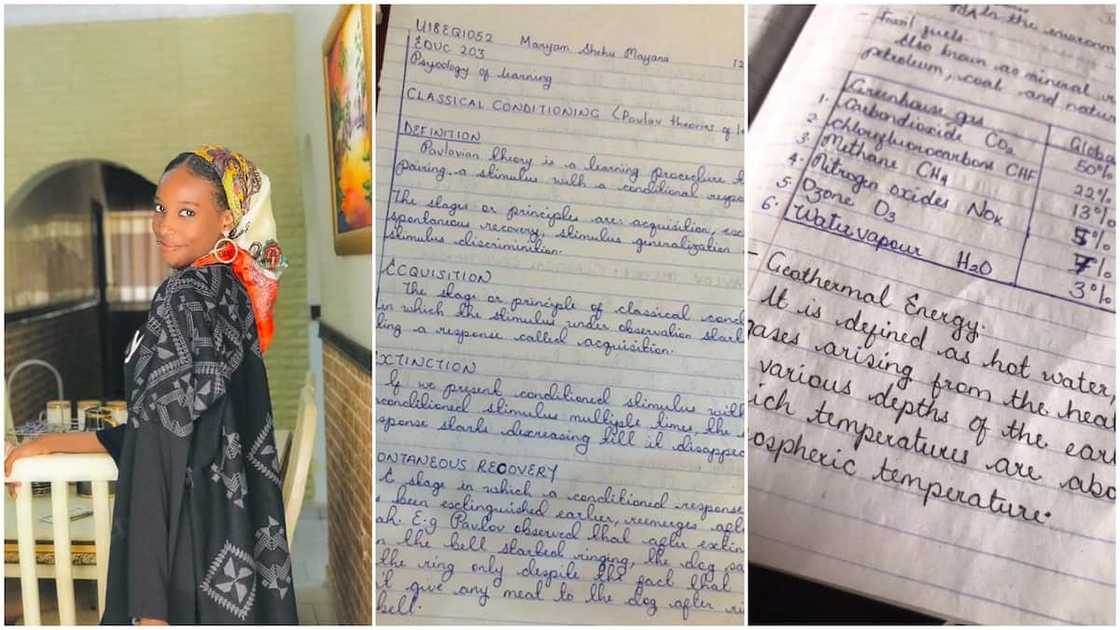 U18EQ1052 Maryam Shehu Mayana 12
EDUC 203
Psycology of learning
CLASSICAL CONDITIONING (Pavlov theories of l
DEFINITION
Pavlovian theory is a learning procedure
pairing a stimulus with a conditional respo
The stages or principles are: acquisition, ex
spontaneous recovery, stimulus generalization
stimulus discriminition.
ACQUISITION
The stage or principle of classical cond
in which the stimulus under observation star
ling a response called acquisition.
XTINCTION
If we present conditioned stimulus with
conditioned stimulus multiple times, the
sponse starts decreasing till it disappea
ONTANEOUS RECOVERY
A stage in which a conditioned response
been exstinguished earlier, reemerges afte
ah. E.g Pavlov observed that after extin
n the bell started ringing, the dog
the ring only despite the fact that
give any meal to the dog after
bell.
in the environm
- fossil fuels.
Also known as mineral
petroleum, coal and natu
Greenhouse gas Globa
1. Carbondioxide CO2 50%
2. Chloroflurocarbons CHF 22%
3. Methane CH4 13%
4. Nitrogen oxides NOx 5%
5. Ozone O3 7%
6. Water vapour H2O 3%
- Geothermal Energy.
It is defined as hot water
gases arising from the hea
various depths of the ear
ich temperatures are abo
ospheric temperature.